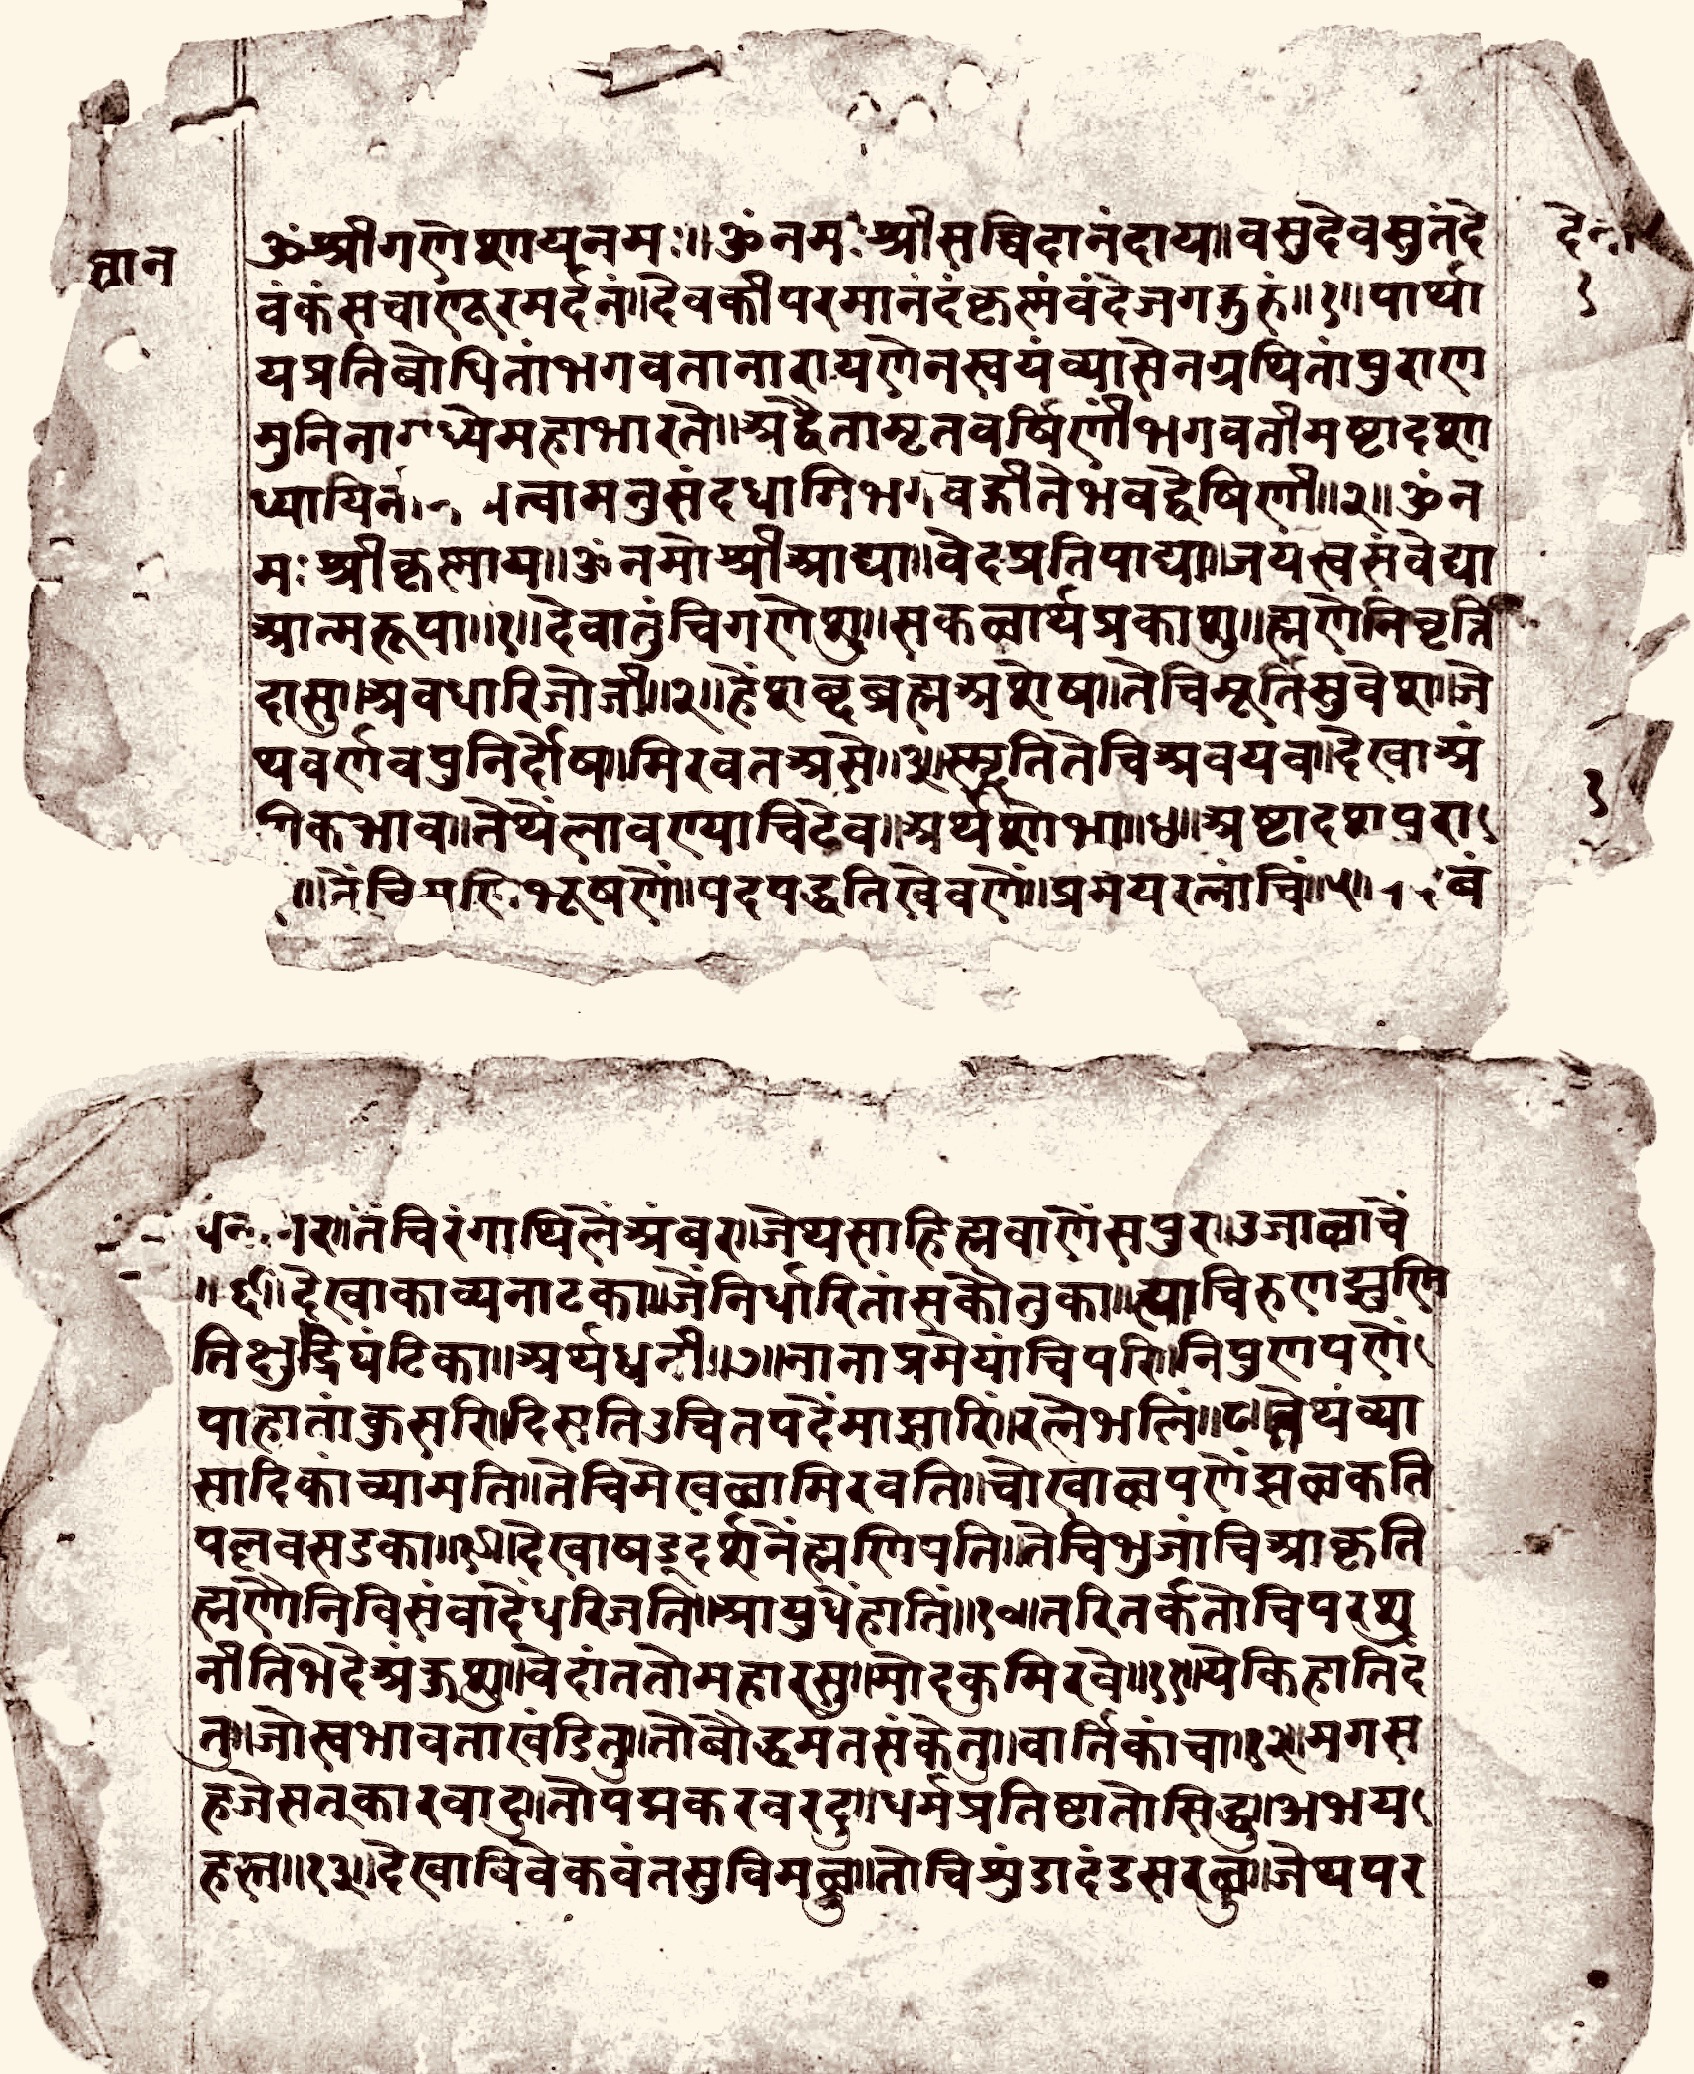 ज्ञान
ॐ श्रीगणेशायनमः॥ॐ नमः श्रीसच्चिदानंदाय॥वसुदेवसुतंदे
वंकंसचाणूंरमर्दनं॥देवकीपरमानंदंकृष्णंवंदेजगद्गुरुं॥१॥पार्था
यप्रतिबोधितांभगवतानारायणेनस्वयंव्यासेनग्रथितांपुराण
मुनिनामध्येमहाभारते॥अद्वैतामृतवर्षिणींभगवतीमष्टादशा
ध्यायिनीं त्वामनुसंदधामिभगवद्गीतेभंवद्वेषिणी॥२॥ॐन
मःश्रीकृष्णाय॥ॐनमोश्रीआद्या॥वेदप्रतिपाद्या॥जयस्वसंवेद्या
आत्मरूपा॥१॥देवातुंचिगणेशु॥सकळार्थप्रकाशु॥ह्मणेनिवृत्ति
दासु॥अवधारिजोजी॥२॥हेंशब्दब्रह्मअशेष॥तेचिमूर्तिसुवेश॥जे
थवर्णवपुनिर्दोष॥मिरवतअसे॥३॥स्मृतितेचिअवयव॥देखाअं
गिकभाव॥तेथेंलावण्याचिठेव॥अर्थशोभा॥४॥अष्टादशपुरा
॥तेंचि भूषणें॥पदपद्धतिखेवणें॥प्रमेयरत्नांचिं॥५॥ बं
रा॥तेंचिरंगाथिलेंअंबर॥जेथसाहिह्मवाणेंसपुर॥उजाळाचें
॥६॥देखाकाव्यनाटका॥जेंनिर्धारितांसकौतुका॥त्याचिरुणझुणि
तिक्षुद्रिघंटिका॥अर्थध्वनी॥७॥नानाप्रमेयांचिपरि॥निपुणपणें
पाहातांकुसरि॥दिसतिउचितपदेंमाझारिं॥रत्नेंभलिं॥८॥तेथंव्या
सादिकांच्यामति॥तेचिमेखळामिरवति॥चोखाळपणेंझळकति
पलवसडका॥९॥देखाषड्दर्शनेंह्मणिपति॥तेचिभुजांचिआकृति
ह्मणौनिविसंवादेंधरिजति॥आयुधेंहातिं॥१०॥तरितर्कतोचिपरशु
नीतिभेदेअंकुशु॥वेदांततोमहारसु॥मोदकुमिरवे॥११॥येकिहातिदं
तु॥जोस्वभावताखंडितु॥तोबौद्धमतसंकेतु॥वार्तिकांचा॥१२॥मगस
हजेसत्कारवादु॥तोपद्मकरवरदु॥धर्मप्रतिष्टातोसिद्धु॥अभय
हस्त॥१३॥देखाविवेकवंतसुविमळु॥तोचिशुंडादंडसरळु॥जेथपर